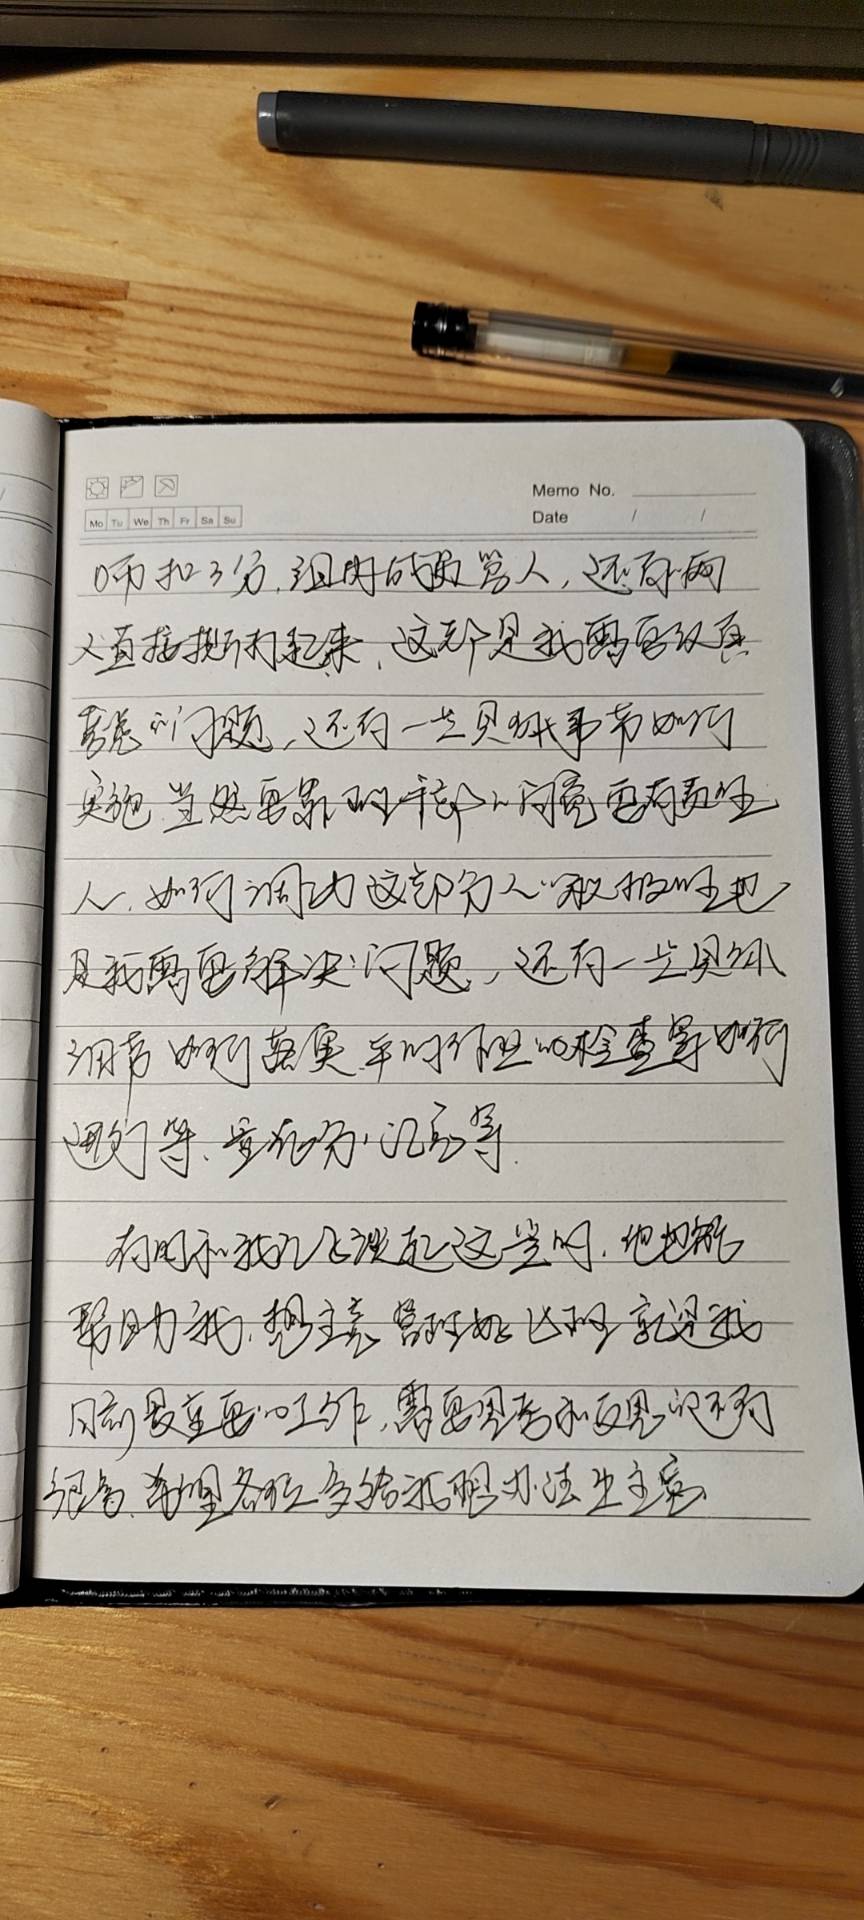 Memo No.
Mo Tu We Th Fr Sa Su
Date / /
扣3分,组内成员骂人,还有两
人直接撕打起来,这都是我需要认真
考虑的问题,还有一些具体事节如何
实施,当然要靠班干部人,毕竟要有责任
人,如何调动这部分人的积极性也
是我需要解决的问题,还有一些具体
细节如何落实,平时作业的检查等如何
进行等,量化分的记录等.
有时和我儿子谈起这些时,他也能
帮助我想主意,管理好班就是我
目前最重要的工作,需要思考和反思的还有
很多,希望各位多给我想办法出主意